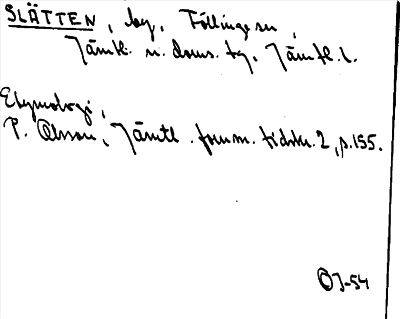 SLÄTTEN, by, Föllinge sn,
Jämtl. n. doms. tg, Jämtl. l.
Etymologi,
P. Olsson, Jämtl. fornm. tidskr. 2, p. 155.
OJ-54